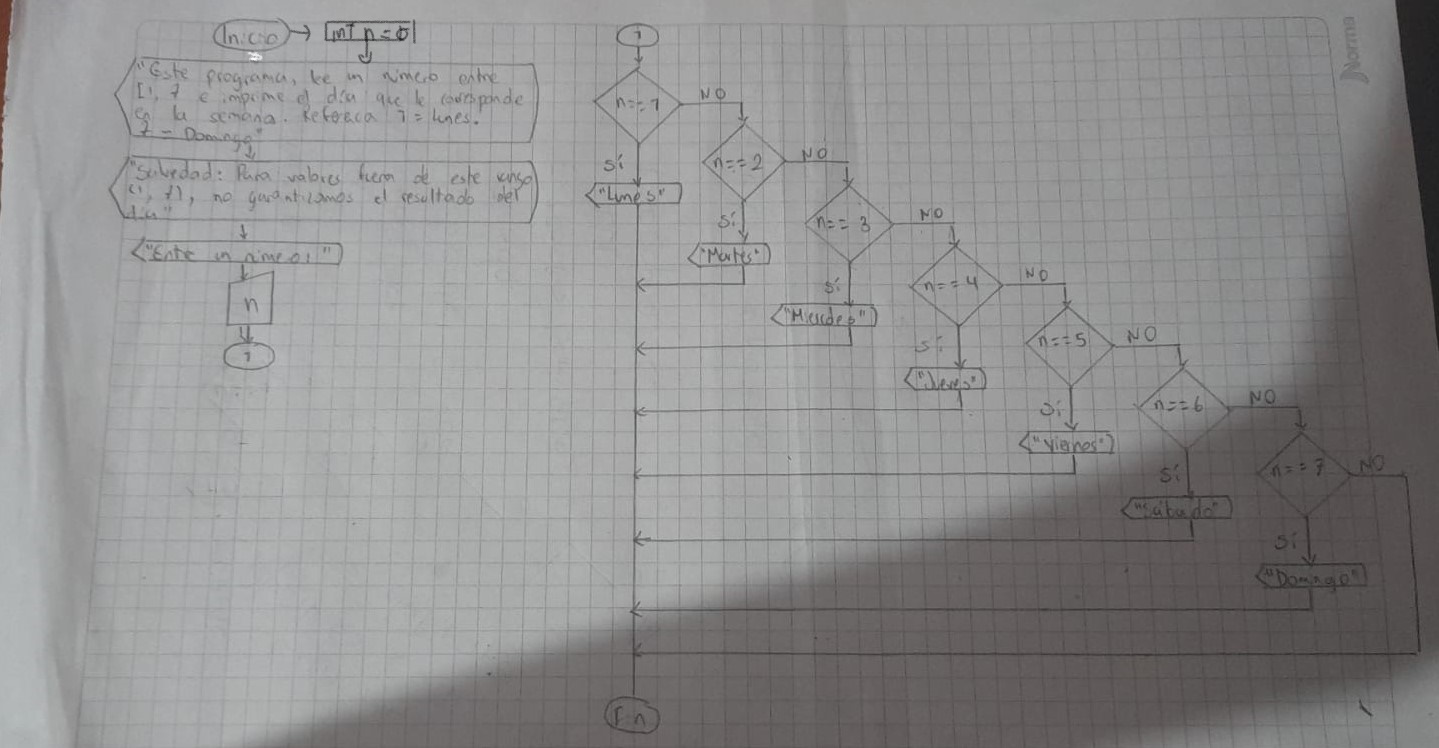 Inicio
int n = 0
"Este programa, lee un número entre
[1, 7 e imprime el día que le corresponde
en la semana. Referecia 1 = lunes.
7 - Domingo"
para valores fuera de este rango
(1, 7), no garantizamos el resultado del
día"
"Entre un número:"
n
1
1
n==1
NO
Sí
"Lunes"
n==2
NO
Sí
"Martes"
n==3
NO
Sí
"Miercoles"
n==4
NO
Sí
"Jueves"
n==5
NO
Sí
"Viernes"
n==6
NO
Sí
"Sábado"
n==7
NO
Sí
"Domingo"
Fin
Norma